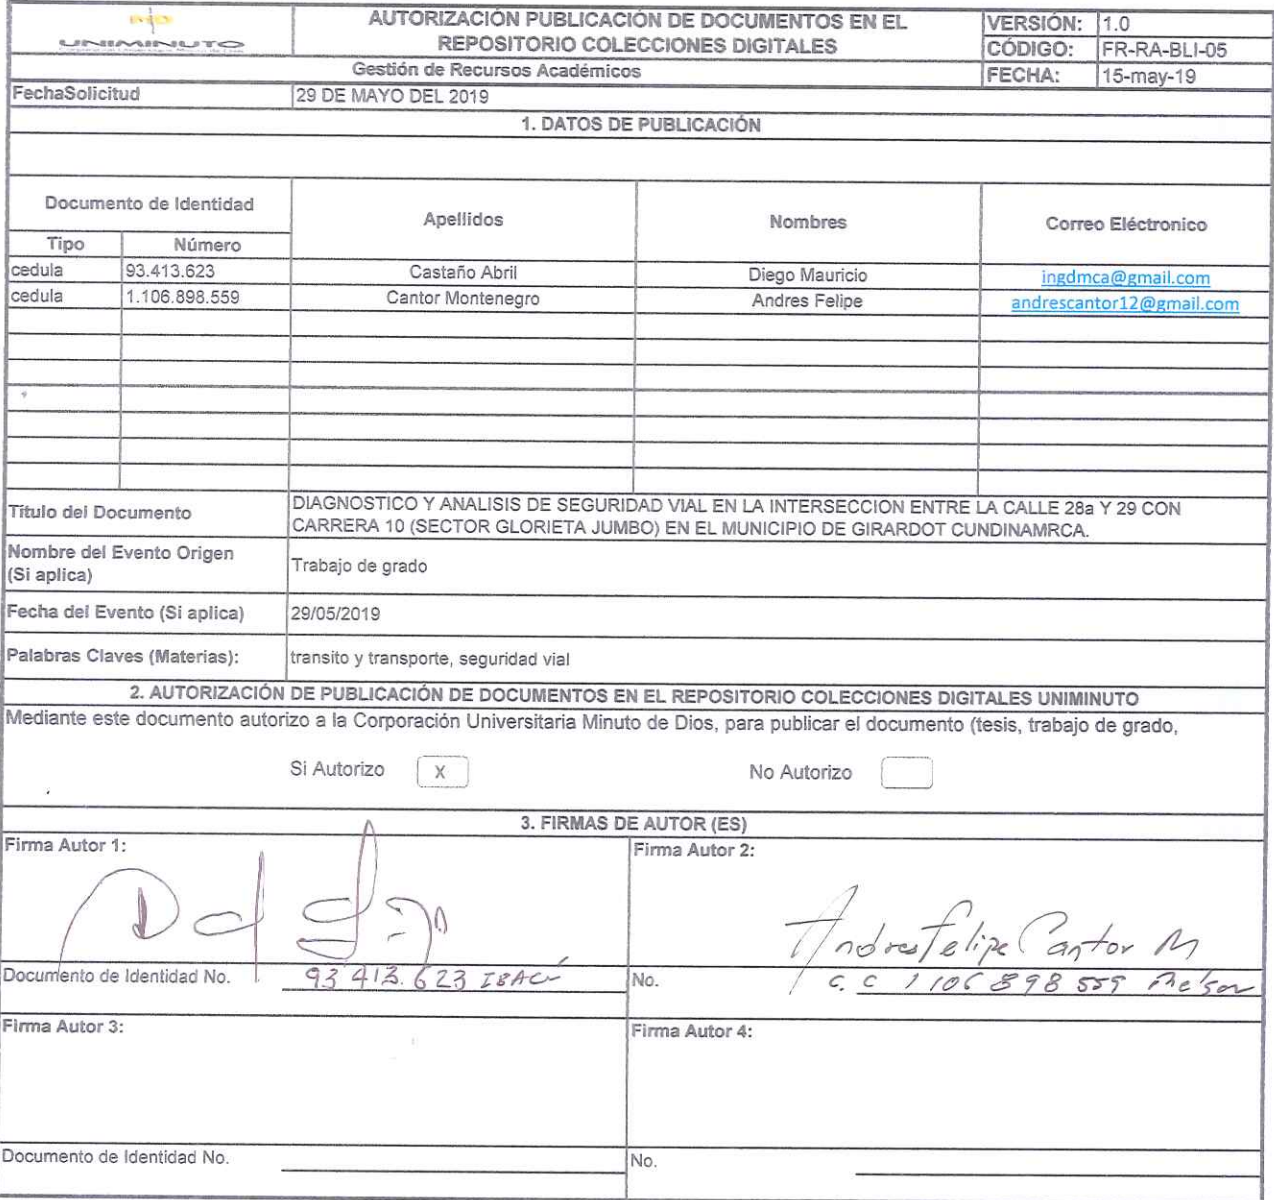 UNIMINUTO
AUTORIZACIÓN PUBLICACIÓN DE DOCUMENTOS EN EL
REPOSITORIO COLECCIONES DIGITALES
VERSIÓN: 1.0
CÓDIGO: FR-RA-BLI-05
Gestión de Recursos Académicos
FECHA: 15-may-19
FechaSolicitud 29 DE MAYO DEL 2019
1. DATOS DE PUBLICACIÓN
Documento de Identidad Apellidos Nombres Correo Eléctronico
Tipo Número
cedula 93.413.623 Castaño Abril Diego Mauricio ingdmca@gmail.com
cedula 1.106.898.559 Cantor Montenegro Andres Felipe andrescantor12@gmail.com
Título del Documento
DIAGNOSTICO Y ANALISIS DE SEGURIDAD VIAL EN LA INTERSECCION ENTRE LA CALLE 28a Y 29 CON
CARRERA 10 (SECTOR GLORIETA JUMBO) EN EL MUNICIPIO DE GIRARDOT CUNDINAMRCA.
Nombre del Evento Origen
(Si aplica)
Trabajo de grado
Fecha del Evento (Si aplica) 29/05/2019
Palabras Claves (Materias): transito y transporte, seguridad vial
2. AUTORIZACIÓN DE PUBLICACIÓN DE DOCUMENTOS EN EL REPOSITORIO COLECCIONES DIGITALES UNIMINUTO
Mediante este documento autorizo a la Corporación Universitaria Minuto de Dios, para publicar el documento (tesis, trabajo de grado,
Si Autorizo X No Autorizo
3. FIRMAS DE AUTOR (ES)
Firma Autor 1: Firma Autor 2:
Andres Felipe Cantor M
Documento de Identidad No. 93 413.623 IBAGUÉ
No. C.C 1106 898 559
Firma Autor 3: Firma Autor 4:
Documento de Identidad No. No.